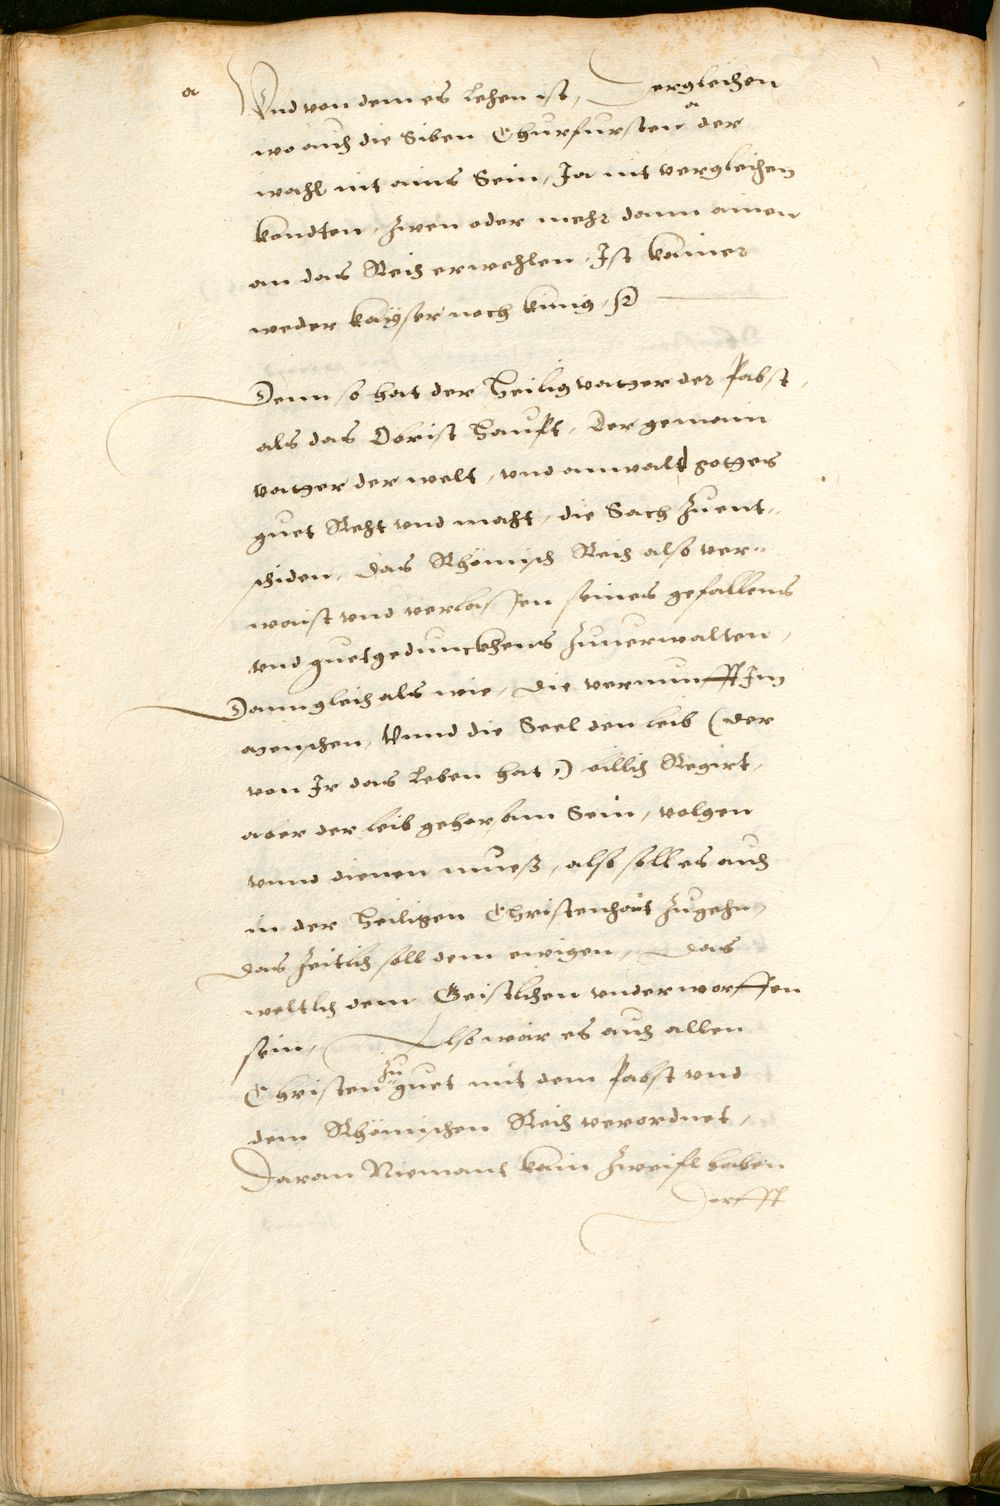 a Vnd von dem es lehen ist, Dergleichen
wo auch die Siben Churfursten a der
wahl nit ains Sein, Ja nit vergleichen
kondten, Zwen oder mehr dann ainen
an das Reich erwehlen, Ist kainer
weder kayser noch kunig,
Denn so hat der Heilig vatter der Pabst,
als das Obrist Haupt, der gemain
vatter der welt, vnd anwald gottes
guet Recht vnd macht, die Sach Zuent¬
schiden, das Rhömisch Reich also ver¬
waist vnd verlassen seines gefallens
vnd guetgedunckhens Zuuerwalten,
Dann gleich als wie, die vernunfft Im
menschen, Vnnd die Seel den leib (der
von Ir das leben hat) billich Regirt,
aber der leib gehorsam Sein, volgen
vnnd dienen muesß, also soll es auch
in der Heiligen Christenhait Zugehn,
das Zeitlich soll dem ewigen, das
weltlich dem Geistlichen vnderworffen
sein, Also wär es auch allen
Christen zu guet mit dem Pabst vnd
dem Rhömischen Reich verordnet,
Daran Niemant kain Zweifl haben
derfft